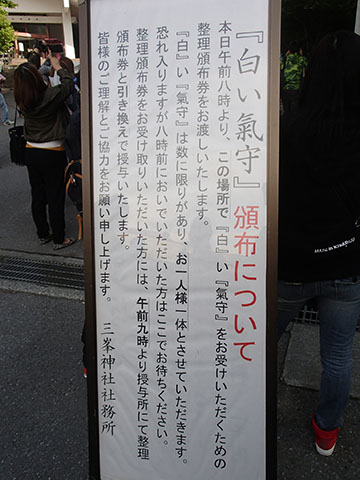 『白い氣守』頒布について
本日午前八時より、この場所で『白』い『氣守』をお受けいただくための
整理頒布券をお渡しいたします。
『白』い『氣守』は数に限りがあり、お一人様一体とさせていただきます。
恐れ入りますが八時前においでいただいた方はここでお待ちください。
整理頒布券をお受け取りいただいた方には、午前九時より授与所にて整理
頒布券と引き換えで授与いたします。
皆様のご理解とご協力をお願い申し上げます。
三峯神社社務所